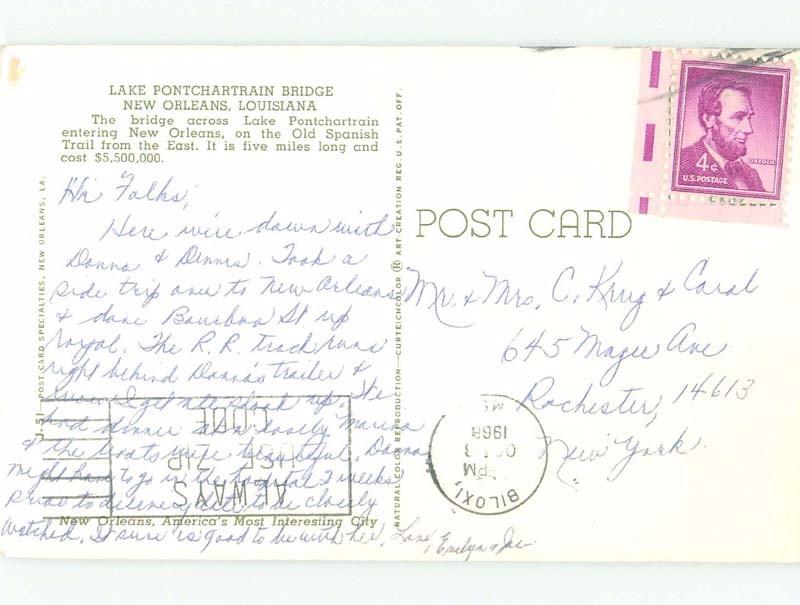 LAKE PONTCHARTRAIN BRIDGE
NEW ORLEANS, LOUISIANA
The bridge across Lake Pontchartrain
entering New Orleans, on the Old Spanish
Trail from the East. It is five miles long and
cost $5,500,000.
Hi Folks,
Here we're down with
Donna & Dennis. Took a
side trip over to New Orleans
& done Bourbon St up
Royal. The R.R. track runs
right behind Donna's trailer &
I get all shook up. We
had dinner at a lovely Marina
& the boats were beautiful. Donna
might have to go in the hospital 2 weeks
prior to to be closely
watched. It sure is good to be with her. Love, Evelyn & Joe
New Orleans, America's Most Interesting City
J-51 POST CARD SPECIALTIES, NEW ORLEANS, LA.
NATURAL COLOR REPRODUCTION—CURTEICHCOLOR ® ART CREATION REG. U.S. PAT. OFF.
POST CARD
4¢
LINCOLN
U.S. POSTAGE
Mr. & Mrs. C. Krug & Carol
645 Magee Ave
Rochester, 14613
New York.
BILOXI, MS
PM
1968
ALWAYS
USE ZIP
CODE